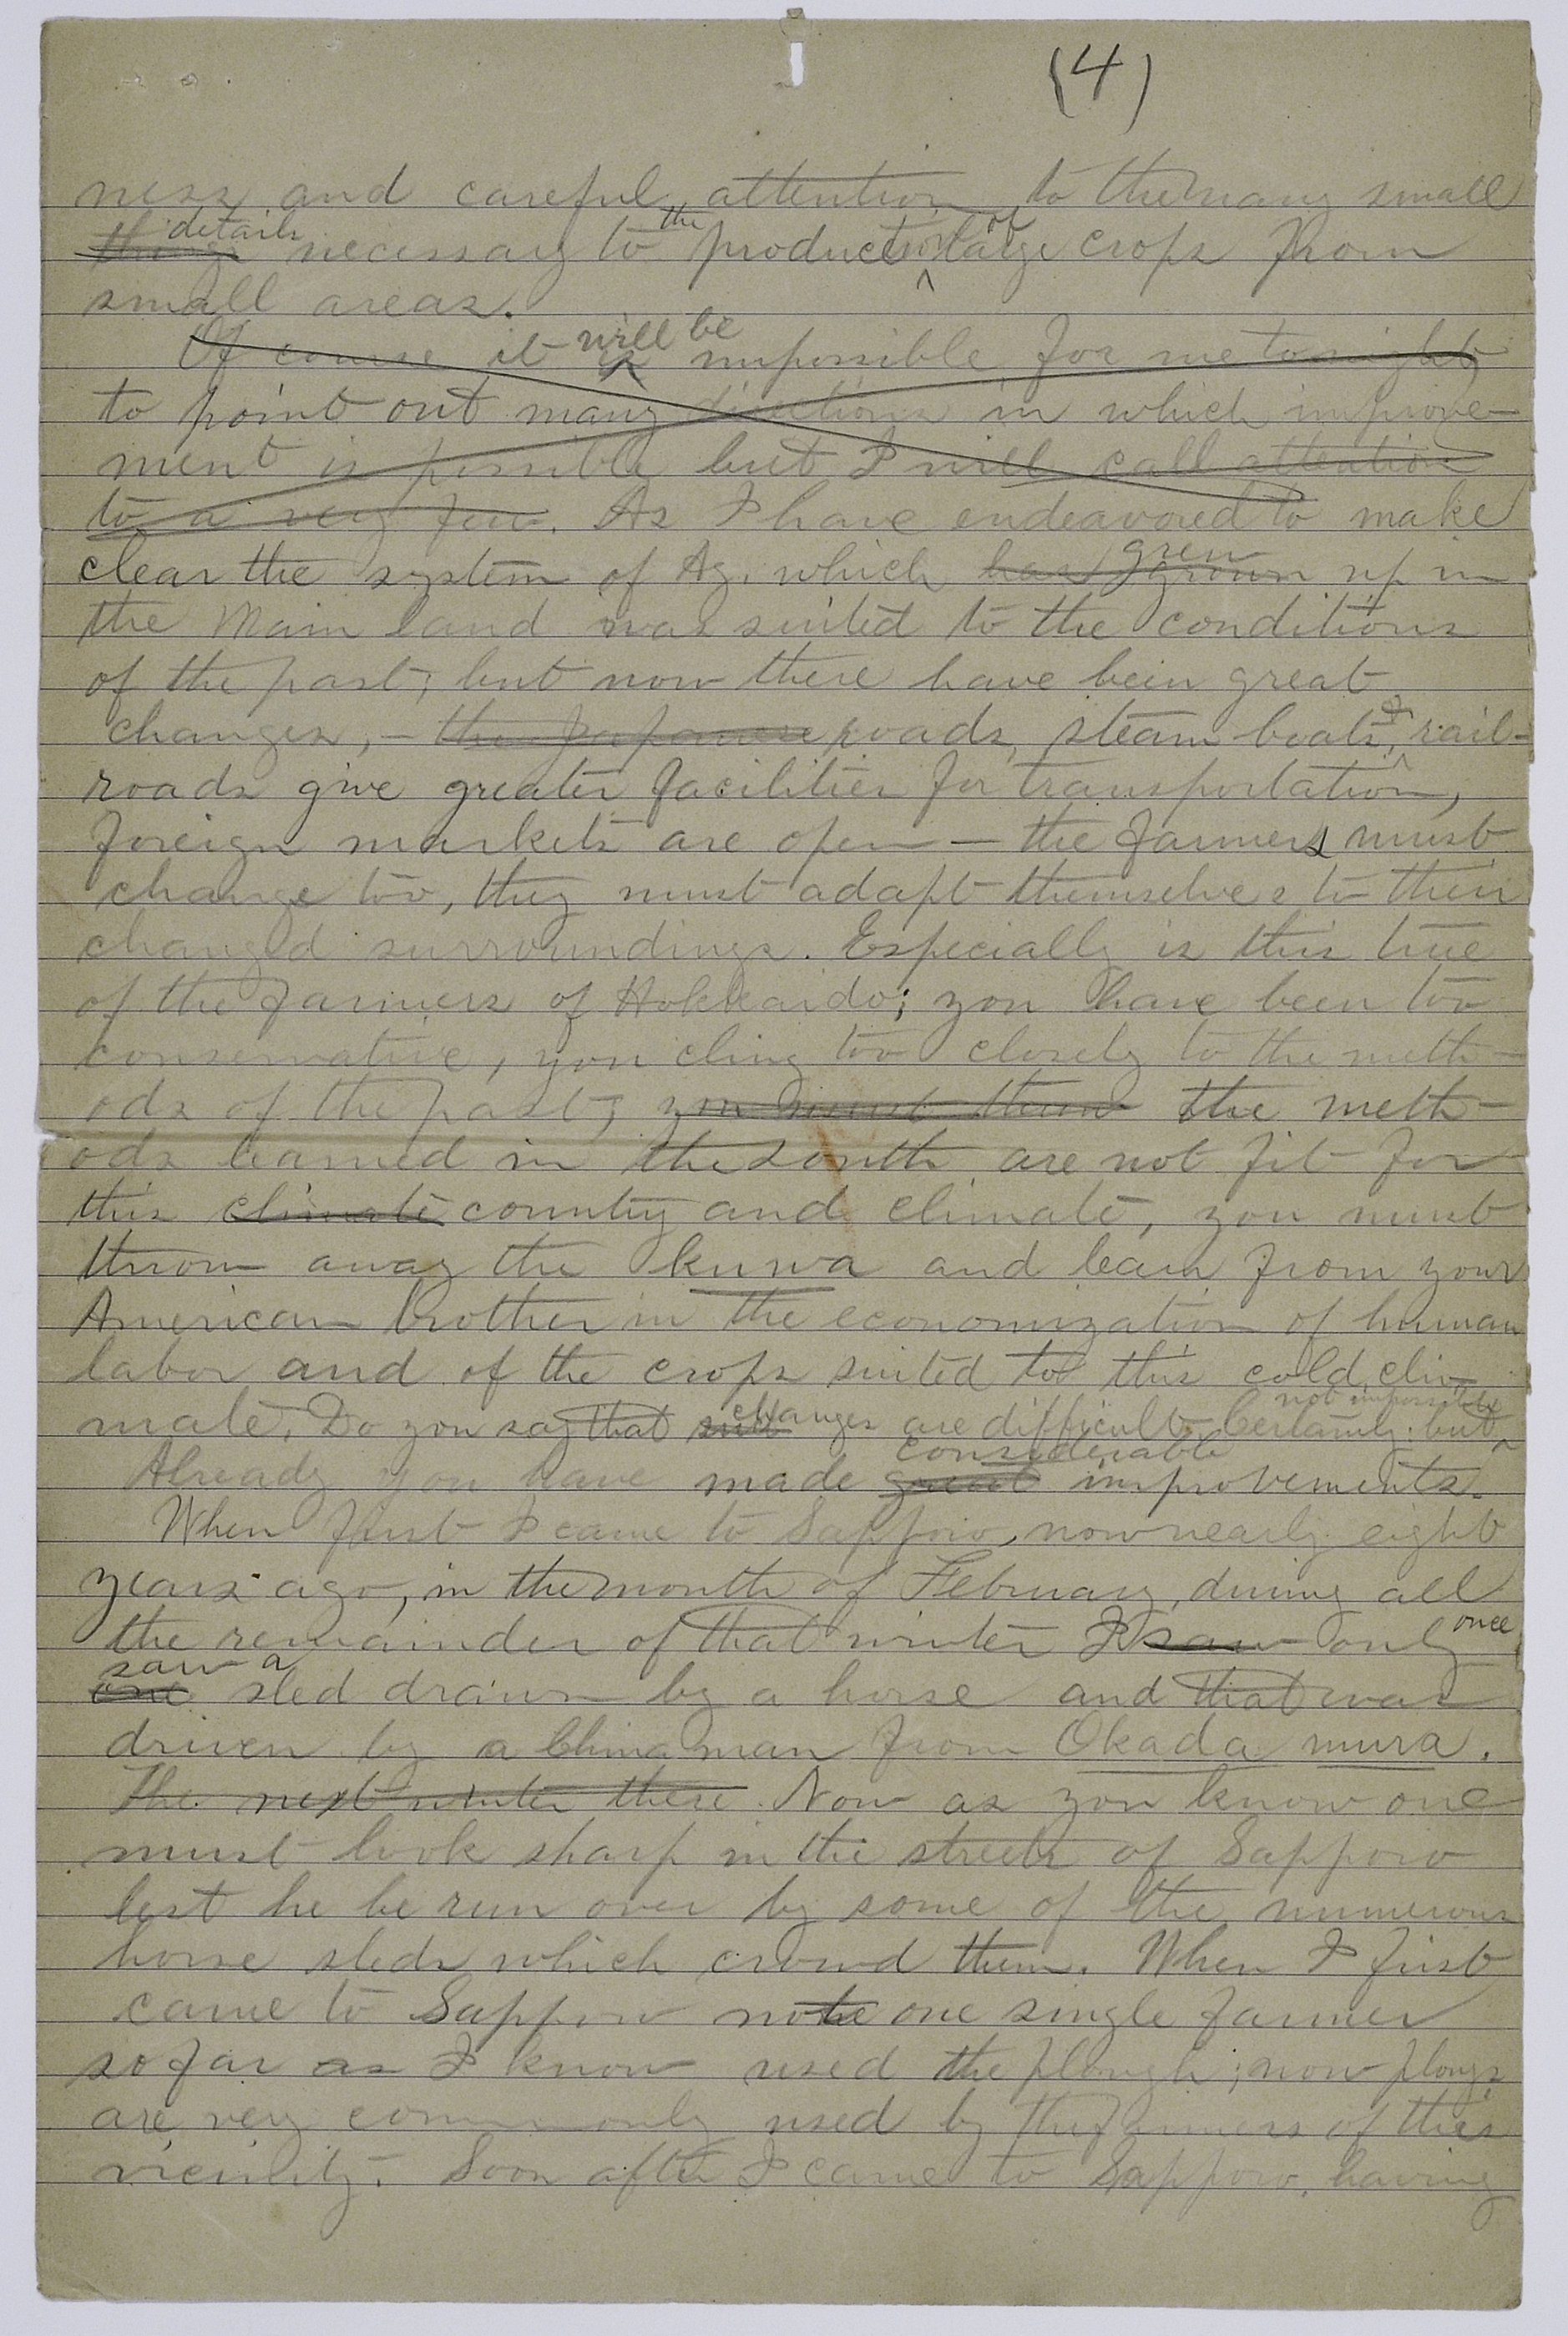 (4)
ness and careful attention to the many small
things details necessary to the production of large crops from
small areas.
Of course it will be impossible for me tonight
to point out many directions in which improve-
ment is possible but I will call attention
to a very few. As I have endeavored to make
clear the system of Ag. which has grown grew up in
the Main land was suited to the conditions
of the past; but now there have been great
changes, - the Japanese roads, steam boats, & rail-
roads give greater facilities for transportation,
foreign markets are open — the farmers must
change too, they must adapt themselves to their
changed surroundings. Especially is this true
of the farmers of Hokkaido; you have been too
conservative, you cling too closely to the meth-
ods of the past; you must throw the meth-
ods learned in the south are not fit for
this climate country and climate, you must
throw away the kuwa and learn from your
American brother in the economization of human
labor and of the crops suited to this cold cli-
mate. Do you say that such changes are difficult. Certainly. but not impossible
Already you have made great considerable improvements.
When first I came to Sapporo, now nearly eight
years ago, in the month of February, during all
the remainder of that winter I saw only once
one saw a sled drawn by a horse and that was
driven by a Chinaman from Okada mura.
The next winter there Now as you know one
must look sharp in the streets of Sapporo
lest he be run over by some of the numerous
horse sleds which crowd them. When I first
came to Sapporo not one single farmer
so far as I know used the plough; now plows
are very commonly used by the farmers of this
vicinity. Soon after I came to Sapporo, having